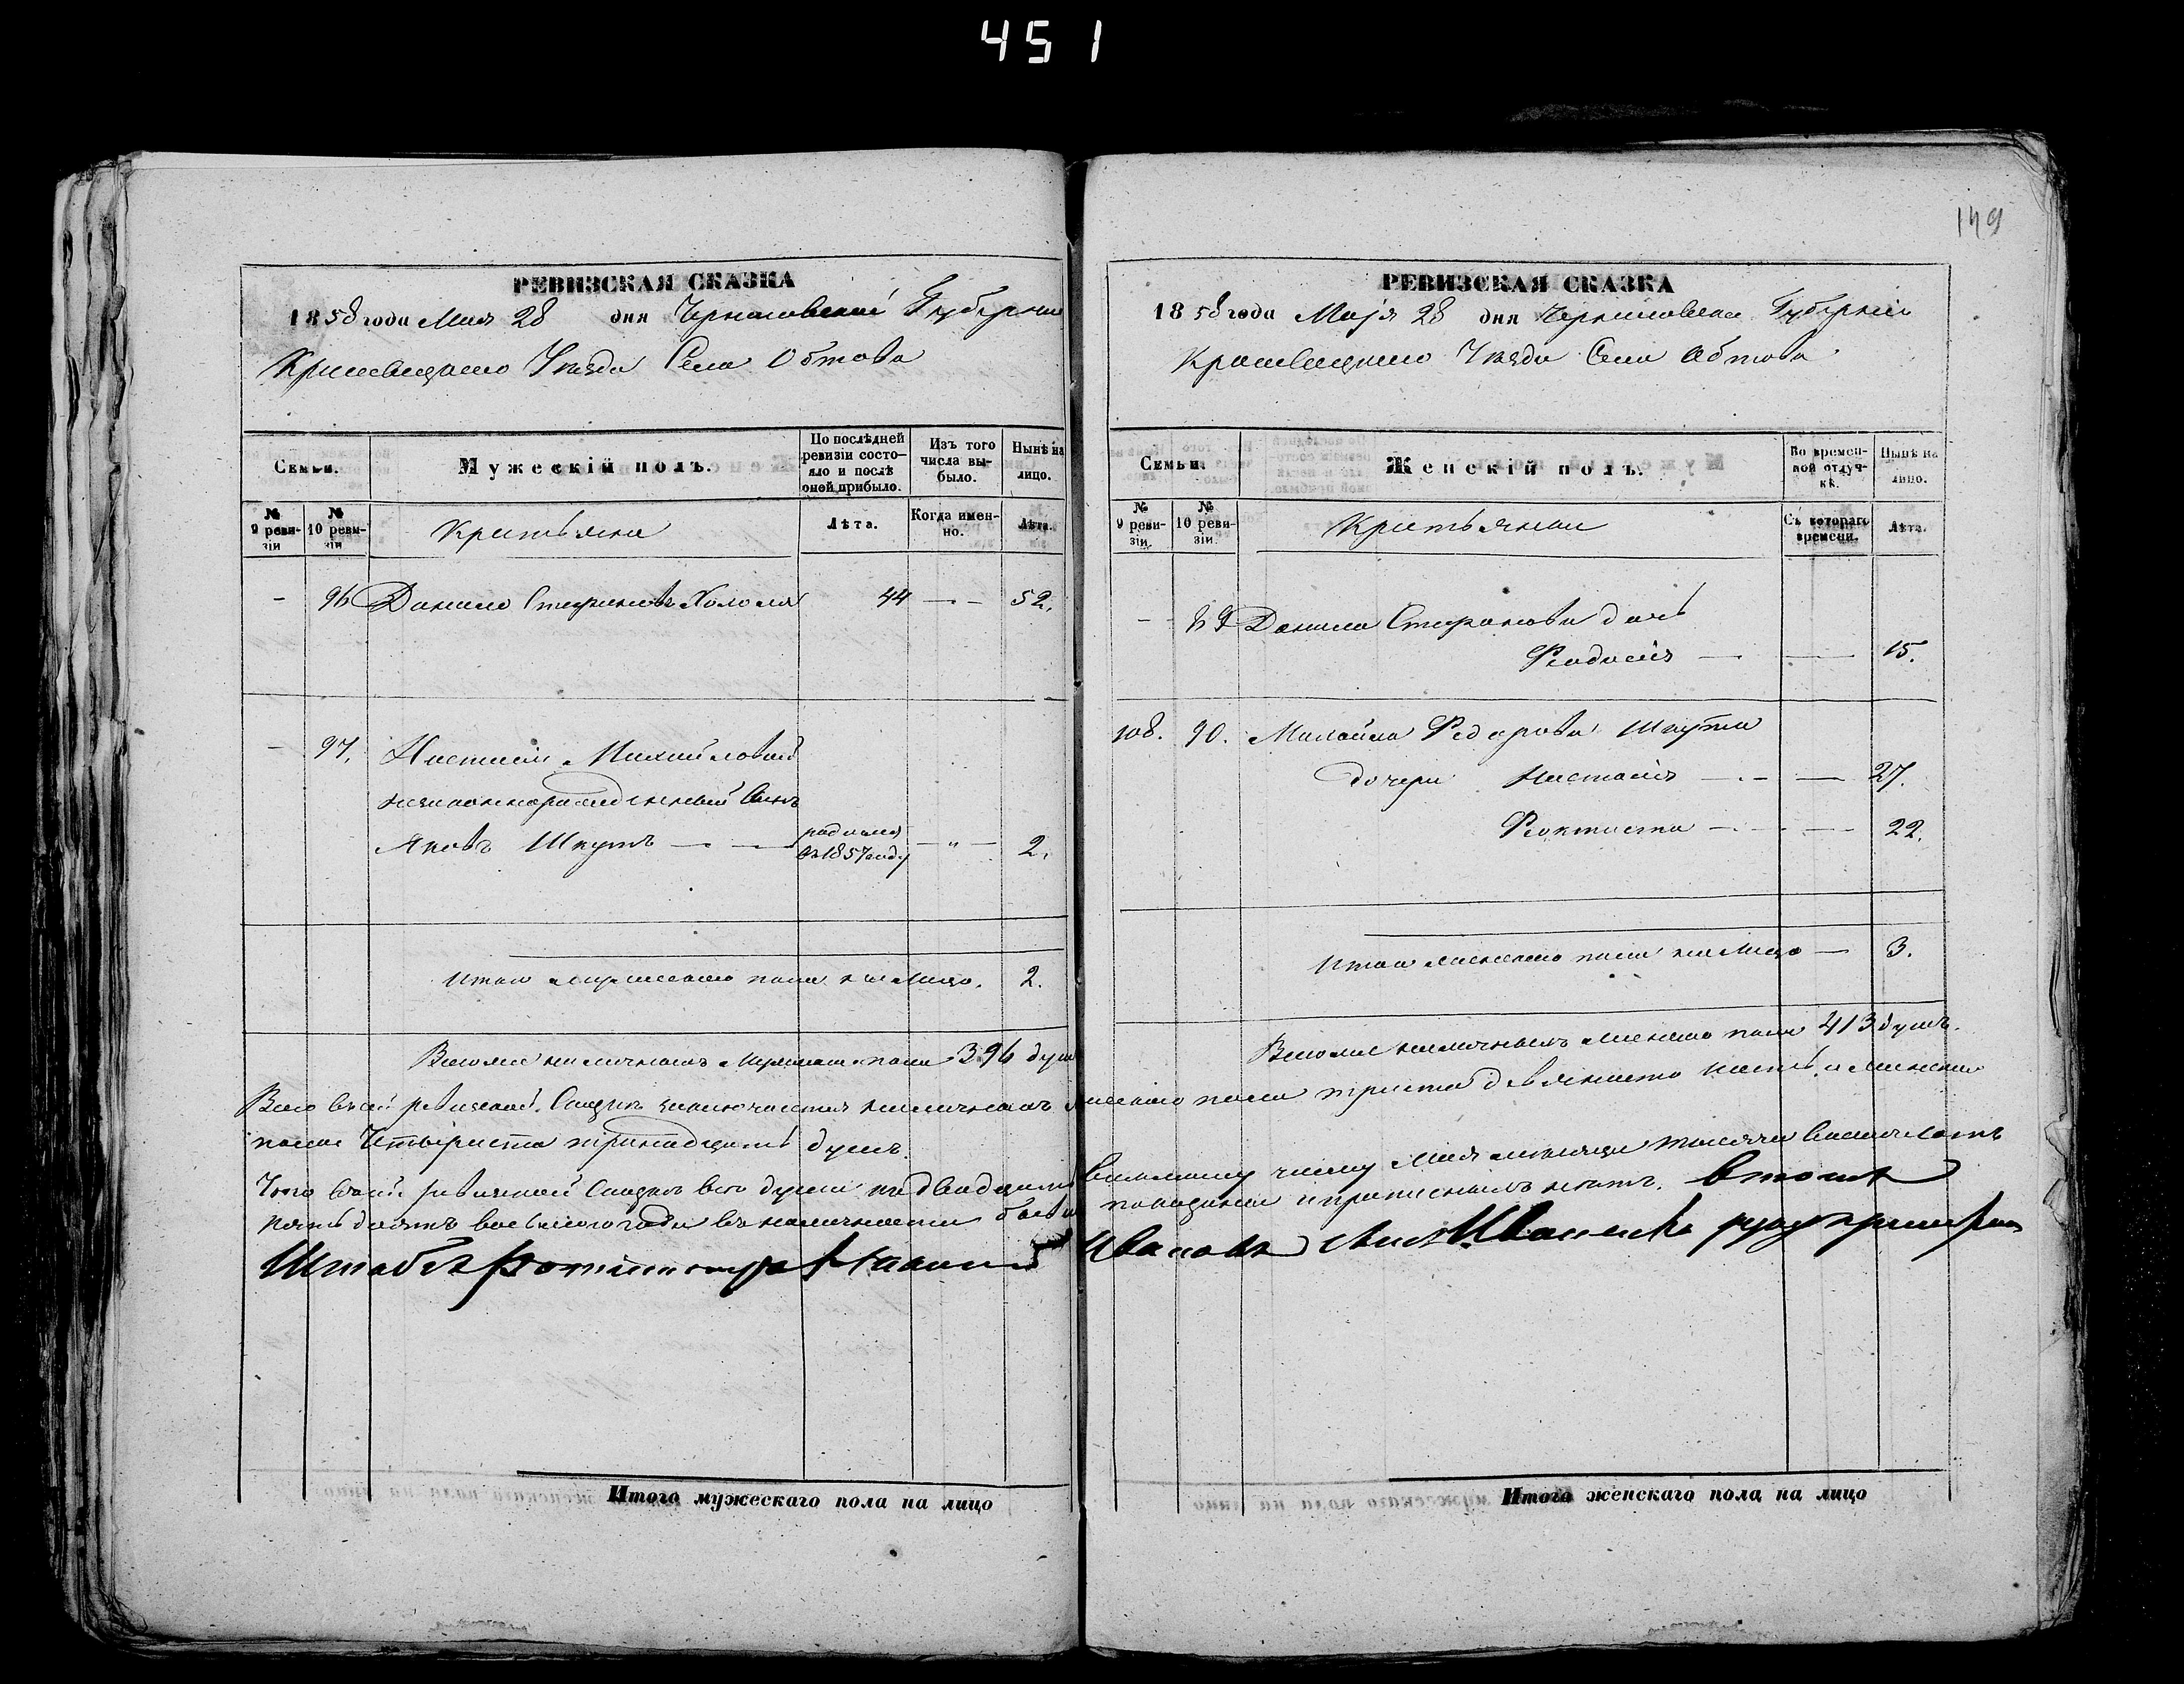 451
149
РЕВИЗСКАЯ СКАЗКА
1858 года Мая 28 дня Черниговской Губернии
Кролевецкаго Уезда Села Обтова
Семьи.
Мужескій полъ.
По послѣдней ревизіи состояло и послѣ оной прибыло.
Изъ того числа выбыло.
Нынѣ на лицо.
№ 9 ревизіи
№ 10 ревизіи
Крестьяне
Лѣта.
Когда именно.
Лѣта.
- 96 Данило Стефановъ 44 — 52.
- 97. Настасіи Михайловой
незаконнорожденный Сынъ
Яковъ Шкутъ — родился въ 1857 году — " — 2.
Итого мужескаго пола на Лицо. 2.
Всего же наличныхъ мужескаго пола 396 душ
РЕВИЗСКАЯ СКАЗКА
1858 года Маія 28 дня Черниговской Губерніи
Кролевецкаго Уезда Села Обтова
Семьи.
Женскій полъ.
Во временной отлучкѣ.
Нынѣ на лицо.
№ 9 ревизіи.
№ 10 ревизіи.
Крестьянки
Съ котораго времени.
Лѣта.
- 89 Данила Стефанова дочь
Феодосія — — 15.
108. 90. Михайла Федорова Шкута
дочери Настасія — — 27.
Феоктиста — — 22.
Итого женскаго пола на Лицо — 3.
Всего же наличныхъ женскаго пола 413 душъ.
Всего въ сей ревизской Сказкѣ заключается наличныхъ мужескаго пола триста девяносто шесть и женска
пола Четыреста тринадцать душъ.
Что въ сей ревизской Сказкѣ все души по двадцать восьмому числу Мая месяца тысяча восемьсотъ
пятьдесятъ восьмого года въ наличности
нетъ. Въ томъ
Штабсъ Ротмистръ Ивановъ руку приложил
Итого мужескаго пола на лицо
Итого женскаго пола на лицо